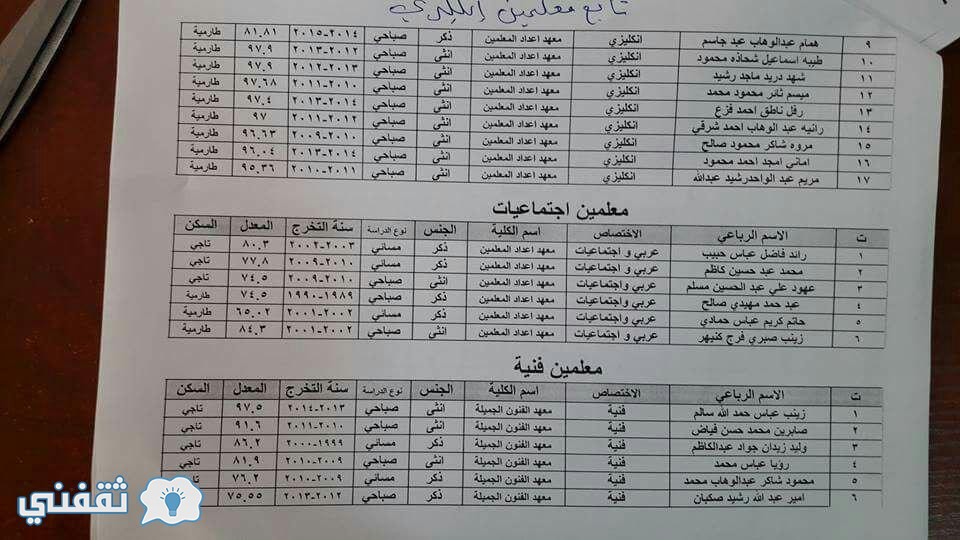 تابع معلمين إنكليزي
٩ همام عبدالوهاب عبد جاسم انكليزي معهد اعداد المعلمين ذكر صباحي ٢٠١٤-٢٠١٥ ٨١.٨١ طارمية
١٠ طيبه اسماعيل شحاذه محمود انكليزي معهد اعداد المعلمين انثى صباحي ٢٠١٢-٢٠١٣ ٩٧.٩ طارمية
١١ شهد دريد ماجد رشيد انكليزي معهد اعداد المعلمين انثى صباحي ٢٠١٢-٢٠١٣ ٩٧.٩ طارمية
١٢ ميسم ثائر محمود محمد انكليزي معهد اعداد المعلمين انثى صباحي ٢٠١٠-٢٠١١ ٩٧.٦٨ طارمية
١٣ رفل ناطق احمد فزع انكليزي معهد اعداد المعلمين انثى صباحي ٢٠١٤-٢٠١٣ ٩٧.٤ طارمية
١٤ رانيه عبد الوهاب احمد شرقي انكليزي معهد اعداد المعلمين انثى صباحي ٢٠١٢-٢٠١١ ٩٧ طارمية
١٥ مروه شاكر محمود صالح انكليزي معهد اعداد المعلمين انثى صباحي ٢٠١٠-٢٠٠٩ ٩٦.٦٣ طارمية
١٦ اماني امجد احمد محمود انكليزي معهد اعداد المعلمين انثى صباحي ٢٠١٤-٢٠١٣ ٩٦.٠٤ طارمية
١٧ مريم عبد الواحدرشيد عبدالله انكليزي معهد اعداد المعلمين انثى صباحي ٢٠١١-٢٠١٠ ٩٥.٣٦ طارمية
معلمين اجتماعيات
ت الاسم الرباعي الاختصاص اسم الكلية الجنس نوع الدراسة سنة التخرج المعدل السكن
١ رائد فاضل عباس حبيب عربي و اجتماعيات معهد اعداد المعلمين ذكر مسائي ٢٠٠٣-٢٠٠٢ ٨٠.٣ تاجي
٢ محمد عبد حسين كاظم عربي و اجتماعيات معهد اعداد المعلمين ذكر مسائي ٢٠١٠-٢٠٠٩ ٧٧.٨ تاجي
٣ عهود علي عبد الحسين مسلم عربي واجتماعيات معهد اعداد المعلمين انثى صباحي ٢٠١٠-٢٠٠٩ ٧٤.٥ تاجي
٤ عبد حمد مهيدي صالح عربي واجتماعيات معهد اعداد المعلمين ذكر صباحي ١٩٨٩-١٩٩٠ ٧٤.٥ طارمية
٥ حاتم كريم عباس حمادي عربي واجتماعيات معهد اعداد المعلمين ذكر مسائي ٢٠٠٢-٢٠٠١ ٦٥.٠٢ طارمية
٦ زينب صبري فرج كنيهر عربي و اجتماعيات معهد اعداد المعلمين انثى صباحي ٢٠٠٢-٢٠٠١ ٨٤.٣ طارمية
معلمين فنية
ت الاسم الرباعي الاختصاص اسم الكلية الجنس نوع الدراسة سنة التخرج المعدل السكن
١ زينب عباس حمد الله سالم فنية معهد الفنون الجميلة انثى صباحي ٢٠١٣-٢٠١٤ ٩٧.٥ تاجي
٢ صابرين محمد حسن فياض فنية معهد الفنون الجميلة انثى صباحي ٢٠١٠-٢٠١١ ٩١.٦ تاجي
٣ وليد زيدان جواد عبدالكاظم فنية معهد الفنون الجميلة ذكر مسائي ١٩٩٩-٢٠٠٠ ٨٦.٢ تاجي
٤ رؤيا عباس محمد فنية معهد الفنون الجميلة انثى صباحي ٢٠٠٩-٢٠١٠ ٨١.٩ تاجي
٥ محمود شاكر عبدالوهاب محمد فنية معهد الفنون الجميلة ذكر مسائي ٢٠٠٩-٢٠١٠ ٧٦.٢
٦ امير عبد الله رشيد صكبان فنية معهد الفنون الجميلة ذكر صباحي ٢٠١٢-٢٠١٣ ٧٥.٥٥
ثقفني